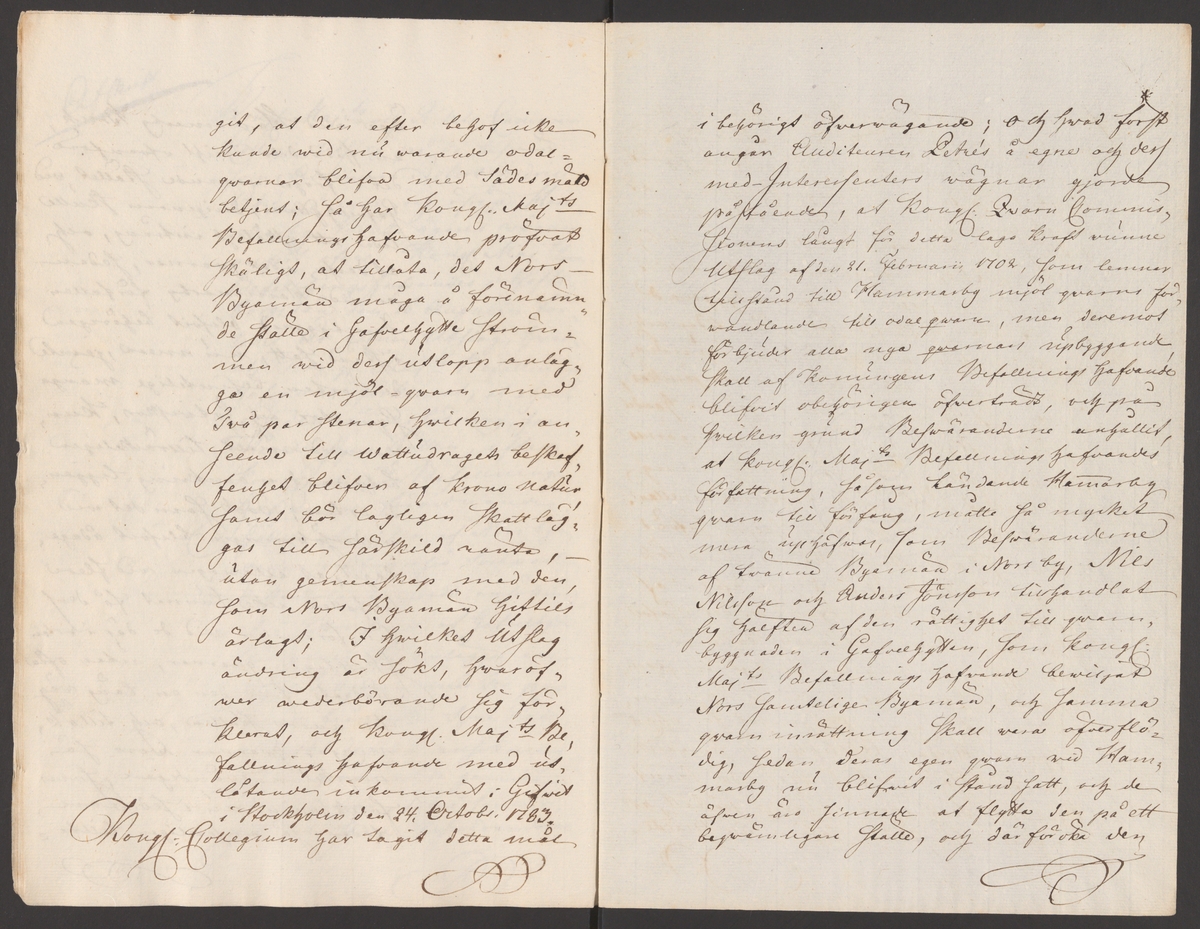 git, at den efter behof icke
kunde wid nu warande odal=
qwarnar blifva med Sädesmäld
betjent; Så har Kongl. Maj:ts
Befallningshafvande pröfvat
skäligt, at tillåta, det Nors
Byamän måga å förenämn=
de ställe i Gafvelhytte ström=
men wid dess utlopp anläg=
ga en mjöl-qwarn med
Två par stenar, hwilken i an=
seende till Wattudragets beskaf=
fenhet blifver af Krono natur
samt bör lagligen Skattläg=
gas till särskild ränta,
utan gemenskap med den,
som Nors Byamän hittils
ärlagt; I hwilket Utslag
ändring är sökt, hwaröf=
wer wederbörande sig för=
klarat, och Kongl. Maj:ts Be=
fallningshafvande med ut=
låtande inkommit; Gifvit
i Stockholm den 24. Octob: 1783.
Kongl: Collegium har tagit detta mål
i behörigt öfverwägande; Och hwad först
angår Auditeuren Petrés å egne och dess
med-Interessenters wägnar gjorde
påstående, at Kongl. Qvarn Commis=
sionens långt för detta laga kraft vunne
Utslag af den 21. Februarii 1702, som lemnar
tilstånd till Hammarby mjöl qwarns för=
wandlande till odal qwarn, men deremot
förbjuder alla nya qwarnars upbyggande
skall af Konungens Befallningshafvande
blifvit obehörigen öfverträdt, och på
hwilken grund Beswäranderne anhållit,
at Kongl. Maj:ts Befallningshafvandes
författning, såsom ländande Hammarby
qwarn till förfång, måtte så mycket
mera uphäfwas, som Beswäranderne
af tvänne Byamän i Nors by, Nils
Nilsson och Anders Jönsson tilhandlat
sig hälften af den rättighet till qwarn=
byggnaden i Gafvelhyttan, som Kongl:
Maj:ts Befallningshafvande bewiljat
Nors samtelige Byamän, och samma
qwarn inrättning skall wara öfverflö=
dig, sedan deras egen qwarn wid Ham=
marby nu blifvit i stånd satt, och de
äfven äro sinnade at flytta den på ett
beqwämligare ställe, och där föröka den